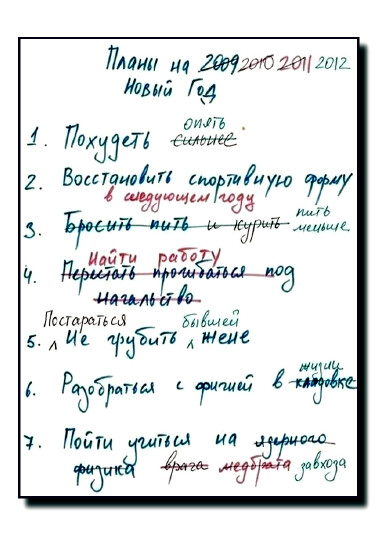 Планы на 2009 2010 2011 2012
Новый Год
опять
1. Похудеть сильнее
2. Восстановить спортивную форму
в следующем году
3. Бросить пить и курить пить
меньше
Найти работу
4. Перестать прогибаться под
начальство
Постараться бывшей
5. Не грубить жене
жизни
6. Разобраться с фигнёй в кладовке
7. Пойти учиться на ядерного
физика врача медбрата завхоза